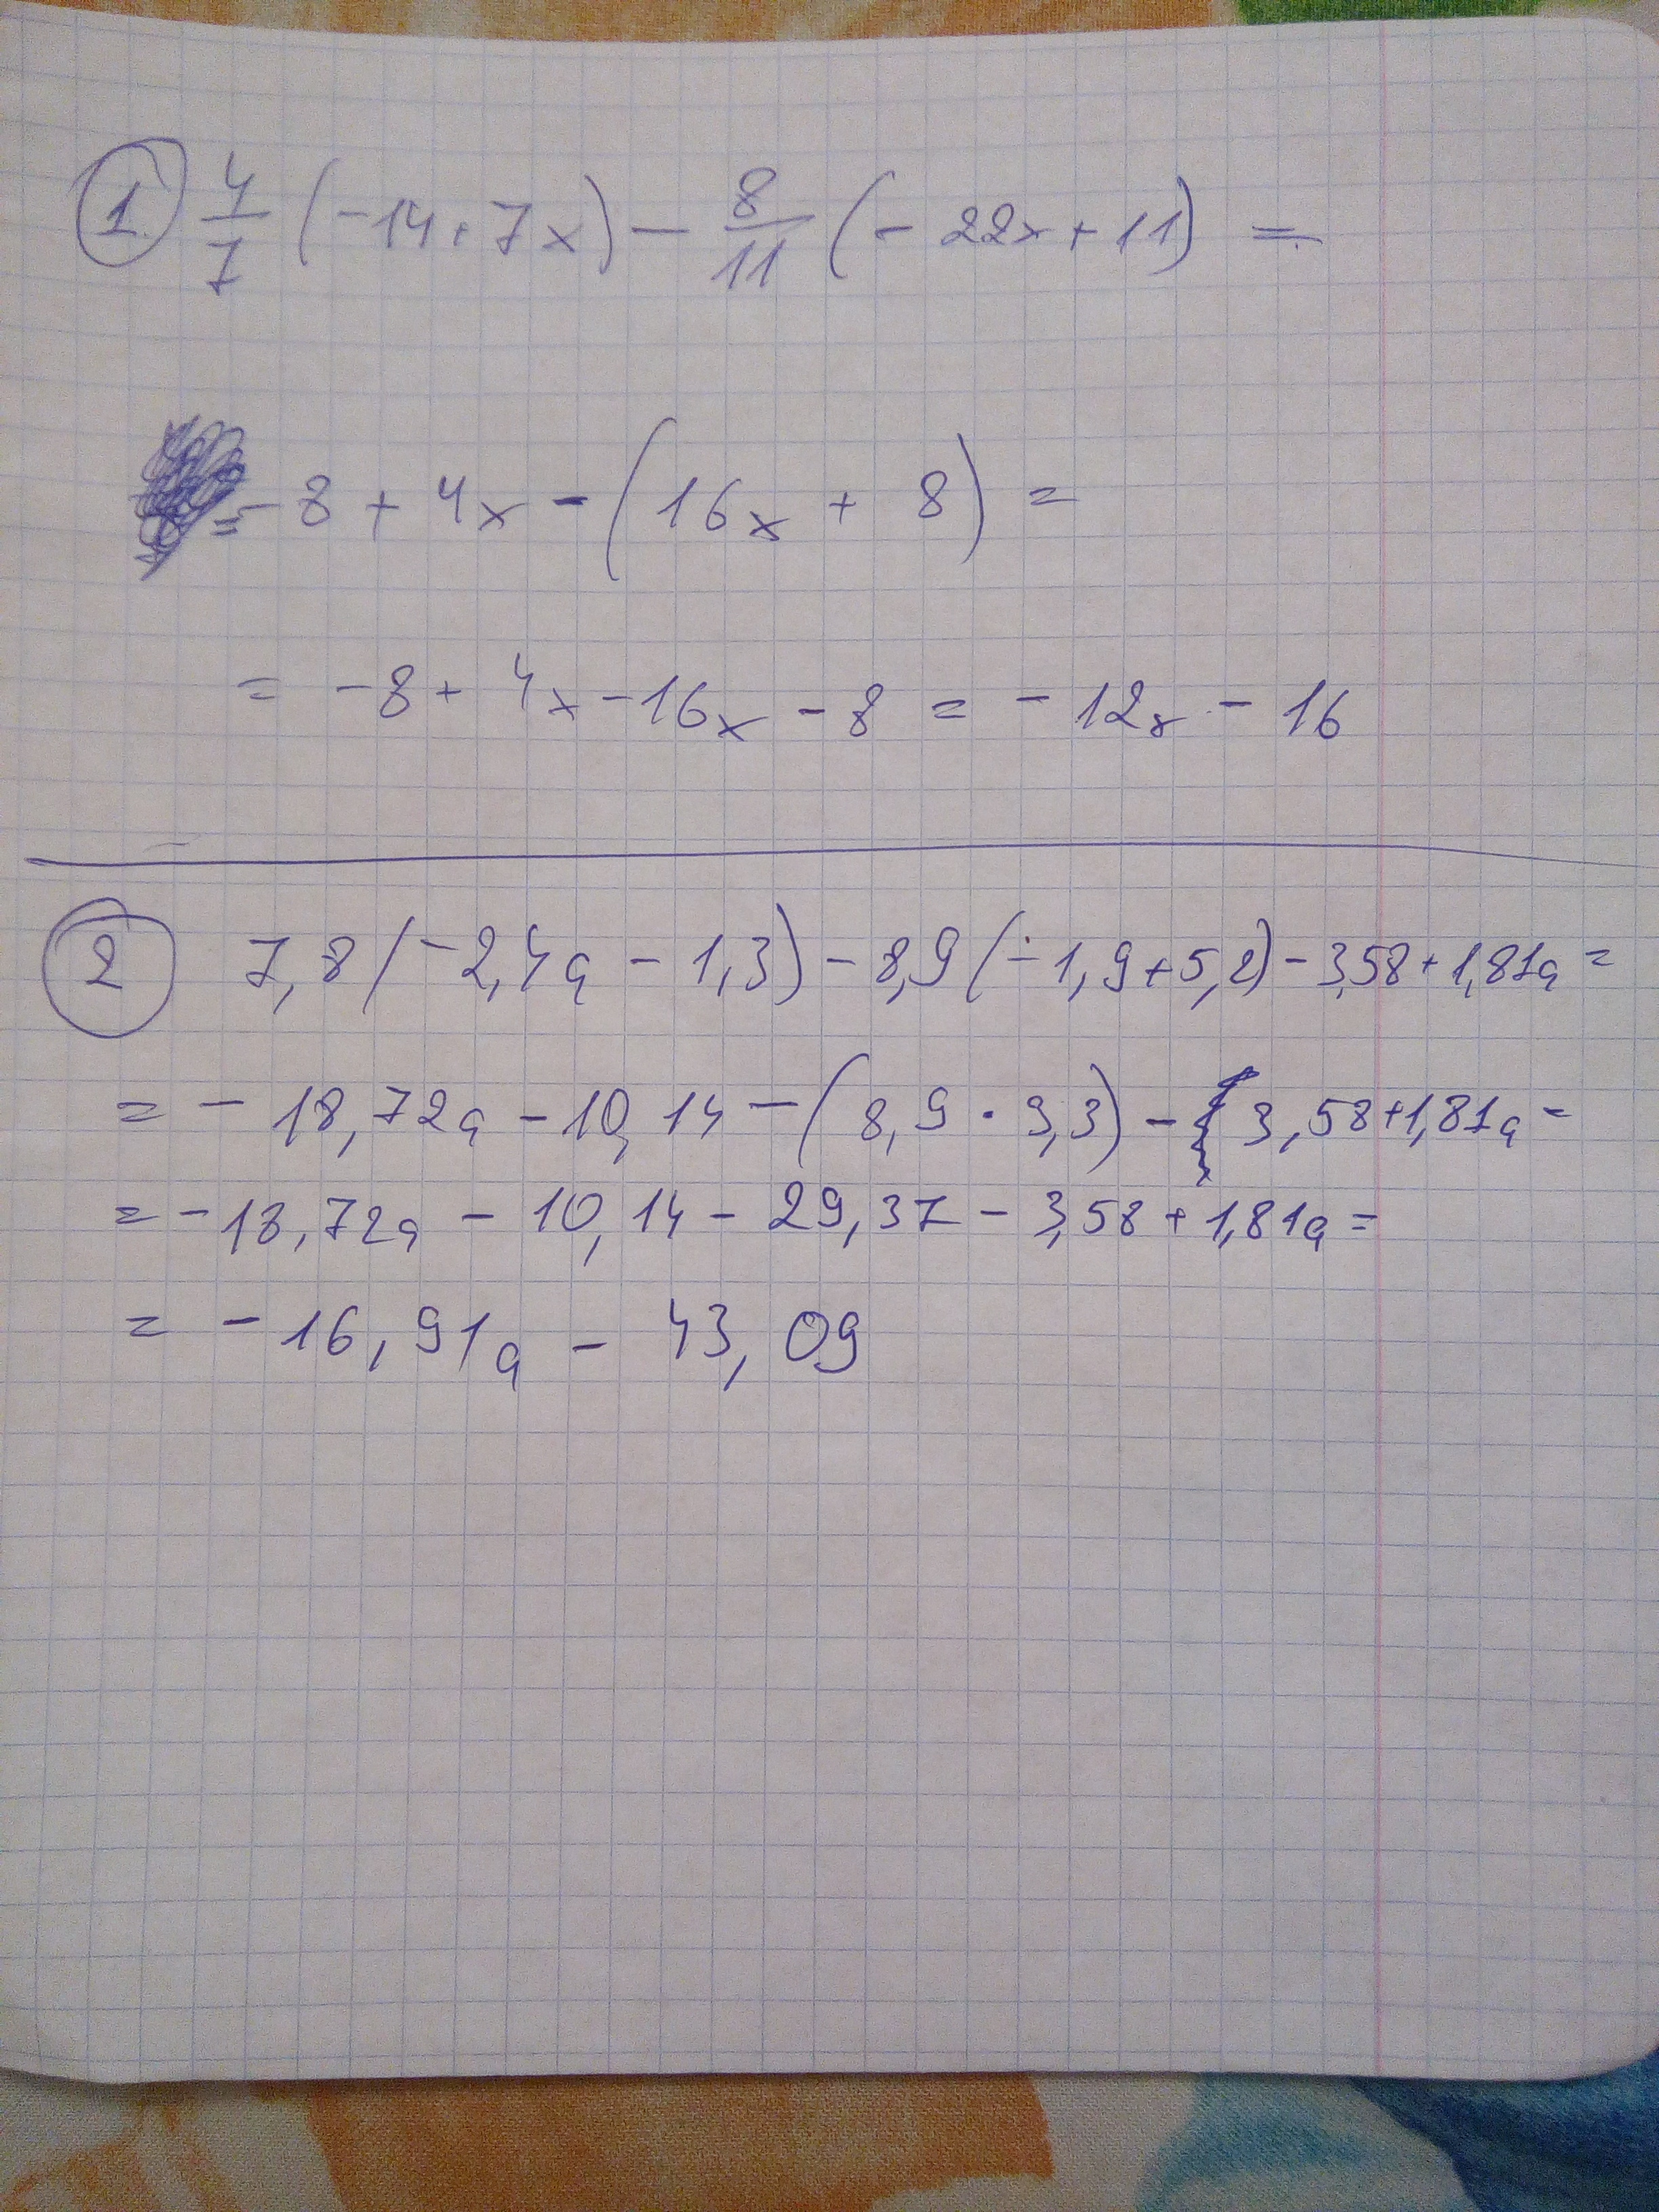 1. 4/7 (-14 + 7x) - 8/11 (- 22x + 11) =
= - 8 + 4x - (16x + 8) =
= -8 + 4x - 16x - 8 = - 12x - 16
2 7,8 (-2,4a - 1,3) - 8,9 (-1,9 + 5,2) - 3,58 + 1,81a =
= - 18,72a - 10,14 - (8,9 · 3,3) - 3,58 + 1,81a =
= - 18,72a - 10,14 - 29,37 - 3,58 + 1,81a =
= - 16,91a - 43,09